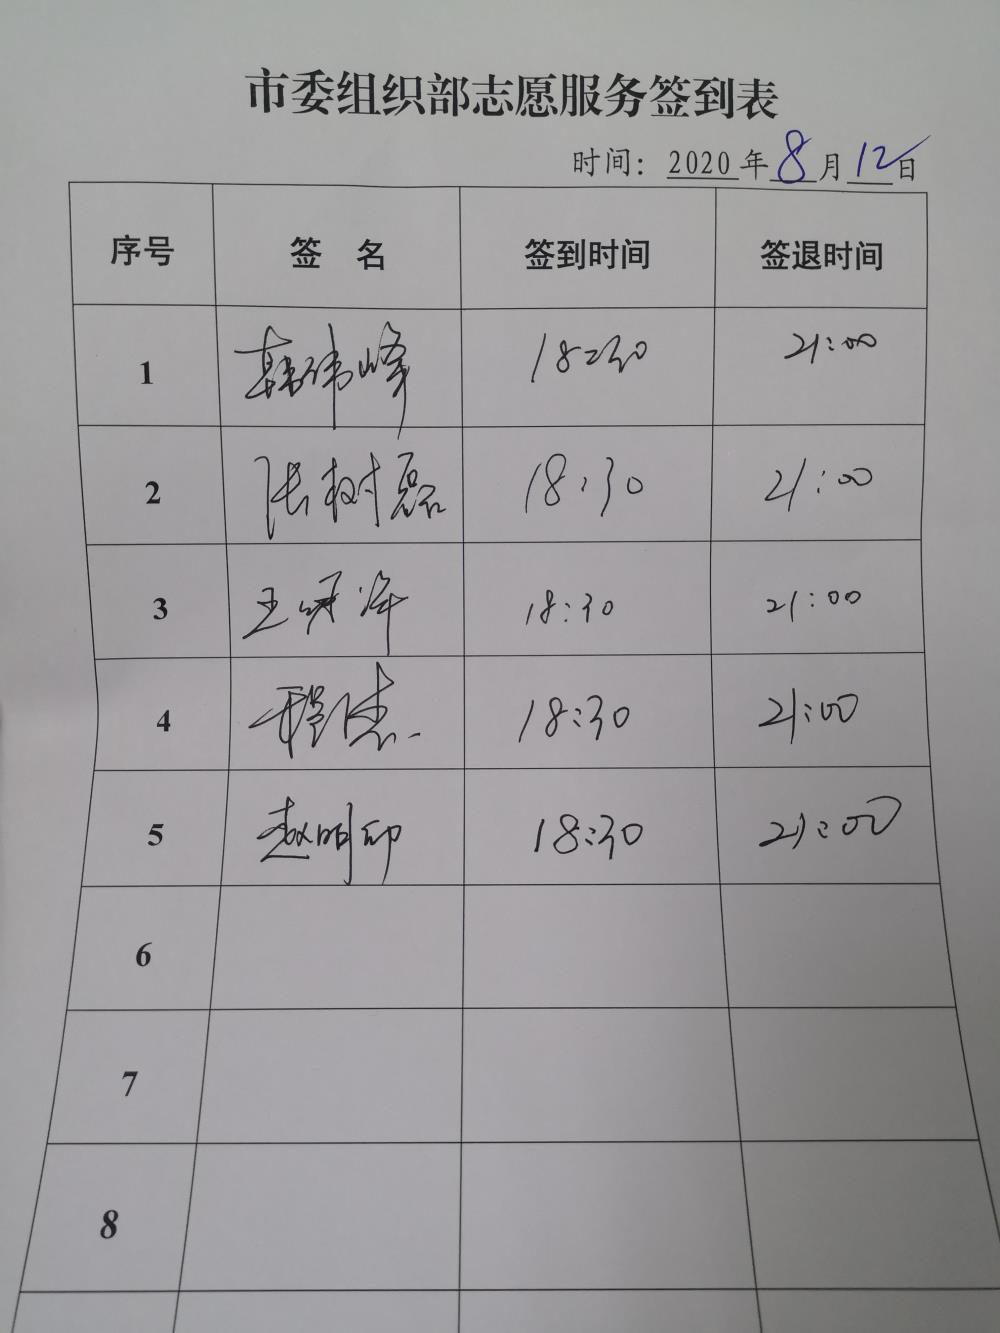 市委组织部志愿服务签到表
时间：2020年8月12日
序号 签 名 签到时间 签退时间
1 韩伟峰 18:30 21:00
2 张树磊 18:30 21:00
3 王 18:30 21:00
4 程杰 18:30 21:00
5 赵明印 18:30 21:00
6
7
8